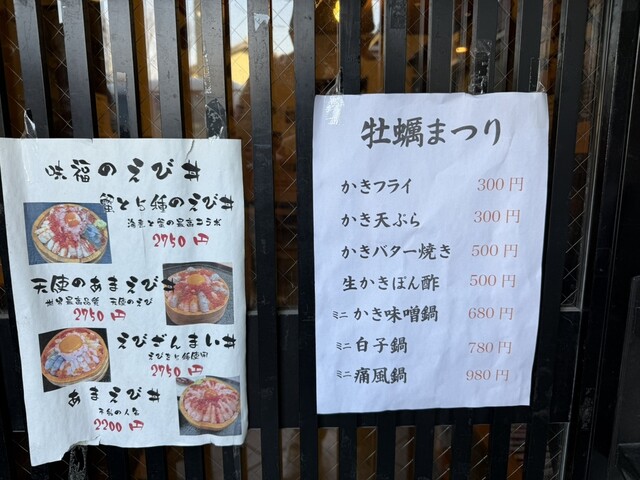 味福のえび丼
蟹とも種のえび丼
海老と蟹の最高コラボ
2750 円
天使のあまえび丼
世界最高品質 天使のえび
2750 円
えびざんまい丼
2750 円
あまえび丼
不動の人気
2200 円
牡蠣まつり
かきフライ 300円
かき天ぷら 300円
かきバター焼き 500円
生かきぽん酢 500円
ミニかき味噌鍋 680円
ミニ白子鍋 780円
ミニ痛風鍋 980円